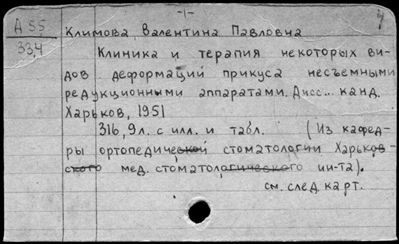 -1-
А 55
334
Климова Валентина Павловна
Клиника и терапия некоторых ви-
дов деформаций прикуса несъемными
редукционными аппаратами. Дисс... канд.
Харьков, 1951
316, 9 л. с илл. и табл. (Из кафед-
ры ортопедической стоматологии Харьков-
ского мед. стоматологического ин-та).
см. след. карт.